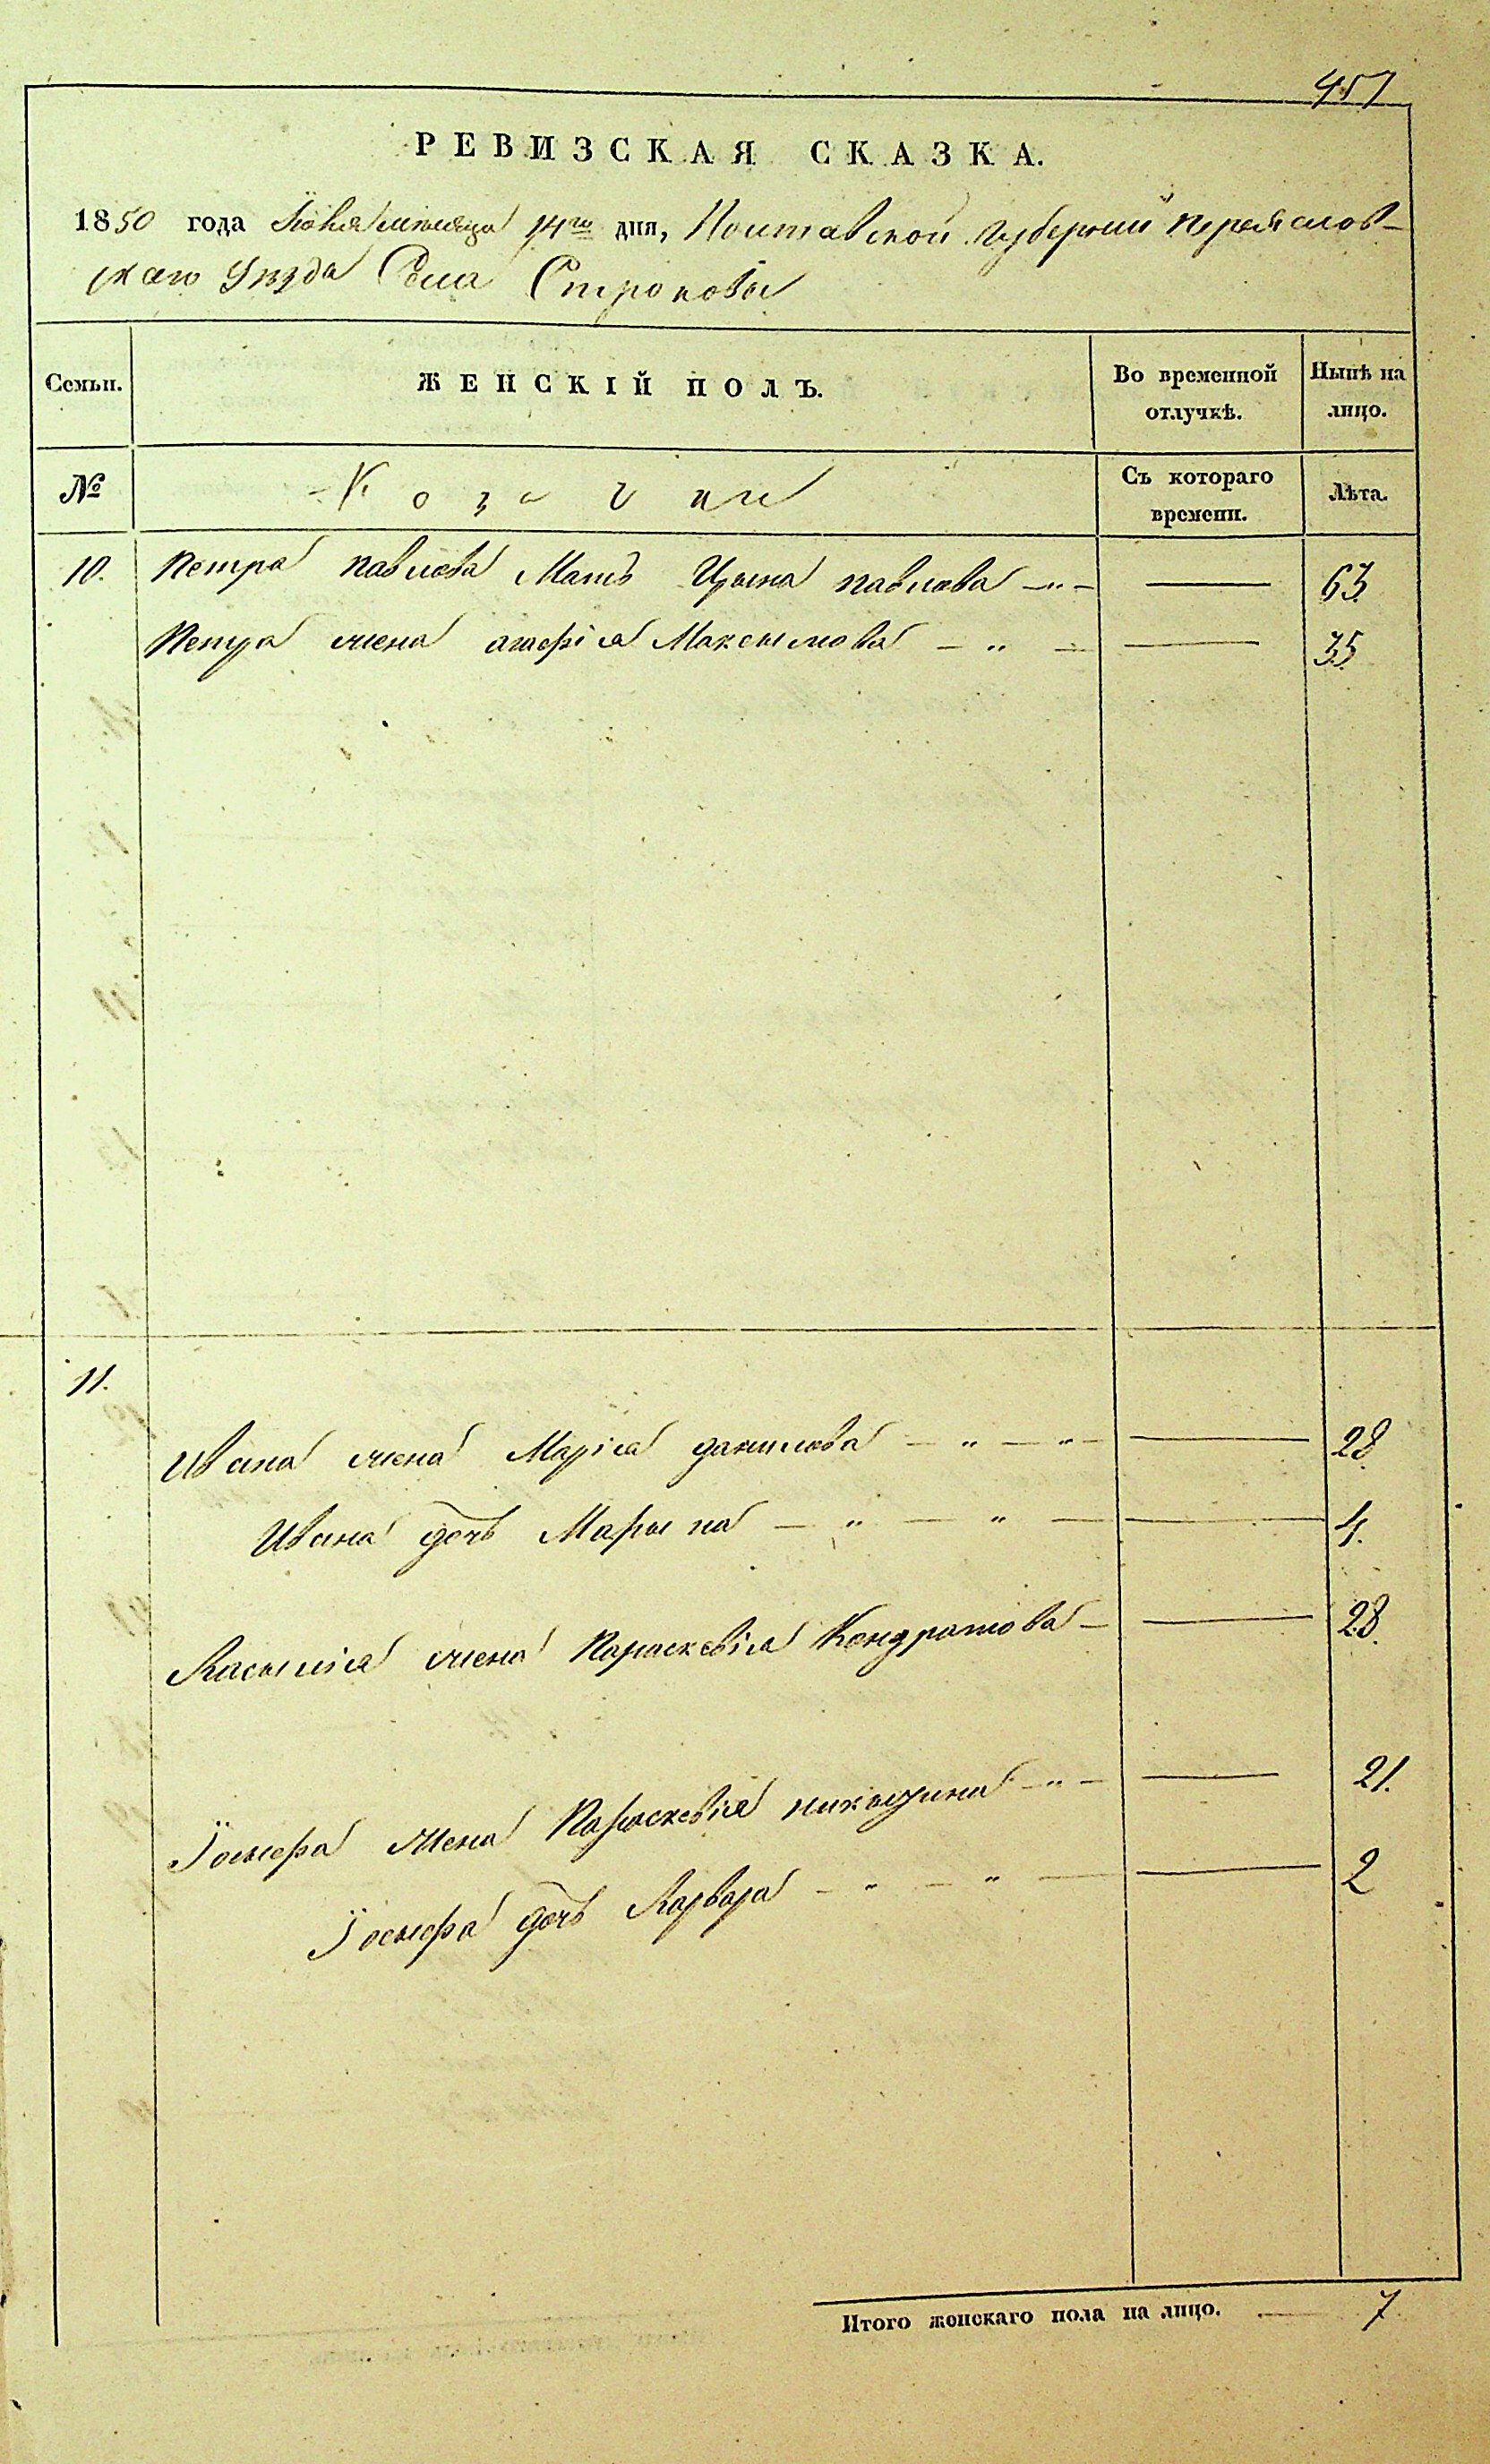 457
РЕВИЗСКАЯ СКАЗКА.
1850 года Ноября месяца 14го дня, Полтавской Губернии Переяслов-
скаго Уезда Села Строковы
Семьи. ЖЕНСКІЙ ПОЛЪ. Во временной отлучкѣ. Нынѣ на лицо.
№ Козачки Съ котораго времени. Лѣта.
10. Петра Павлова Мать Ирына павлова — " — 63.
Петра жена агафія Максымова — " — 35.
11.
Ивана жена Марія данилова — " — " — 28.
Ивана дочь Марына — " — " — 4.
Василія жена Параскевія Кондратова — 28.
Іосифа жена Параскевія никитина — " — 21.
Іосифа дочь Варвара — " — " — 2
Итого женскаго пола на лицо. — 7